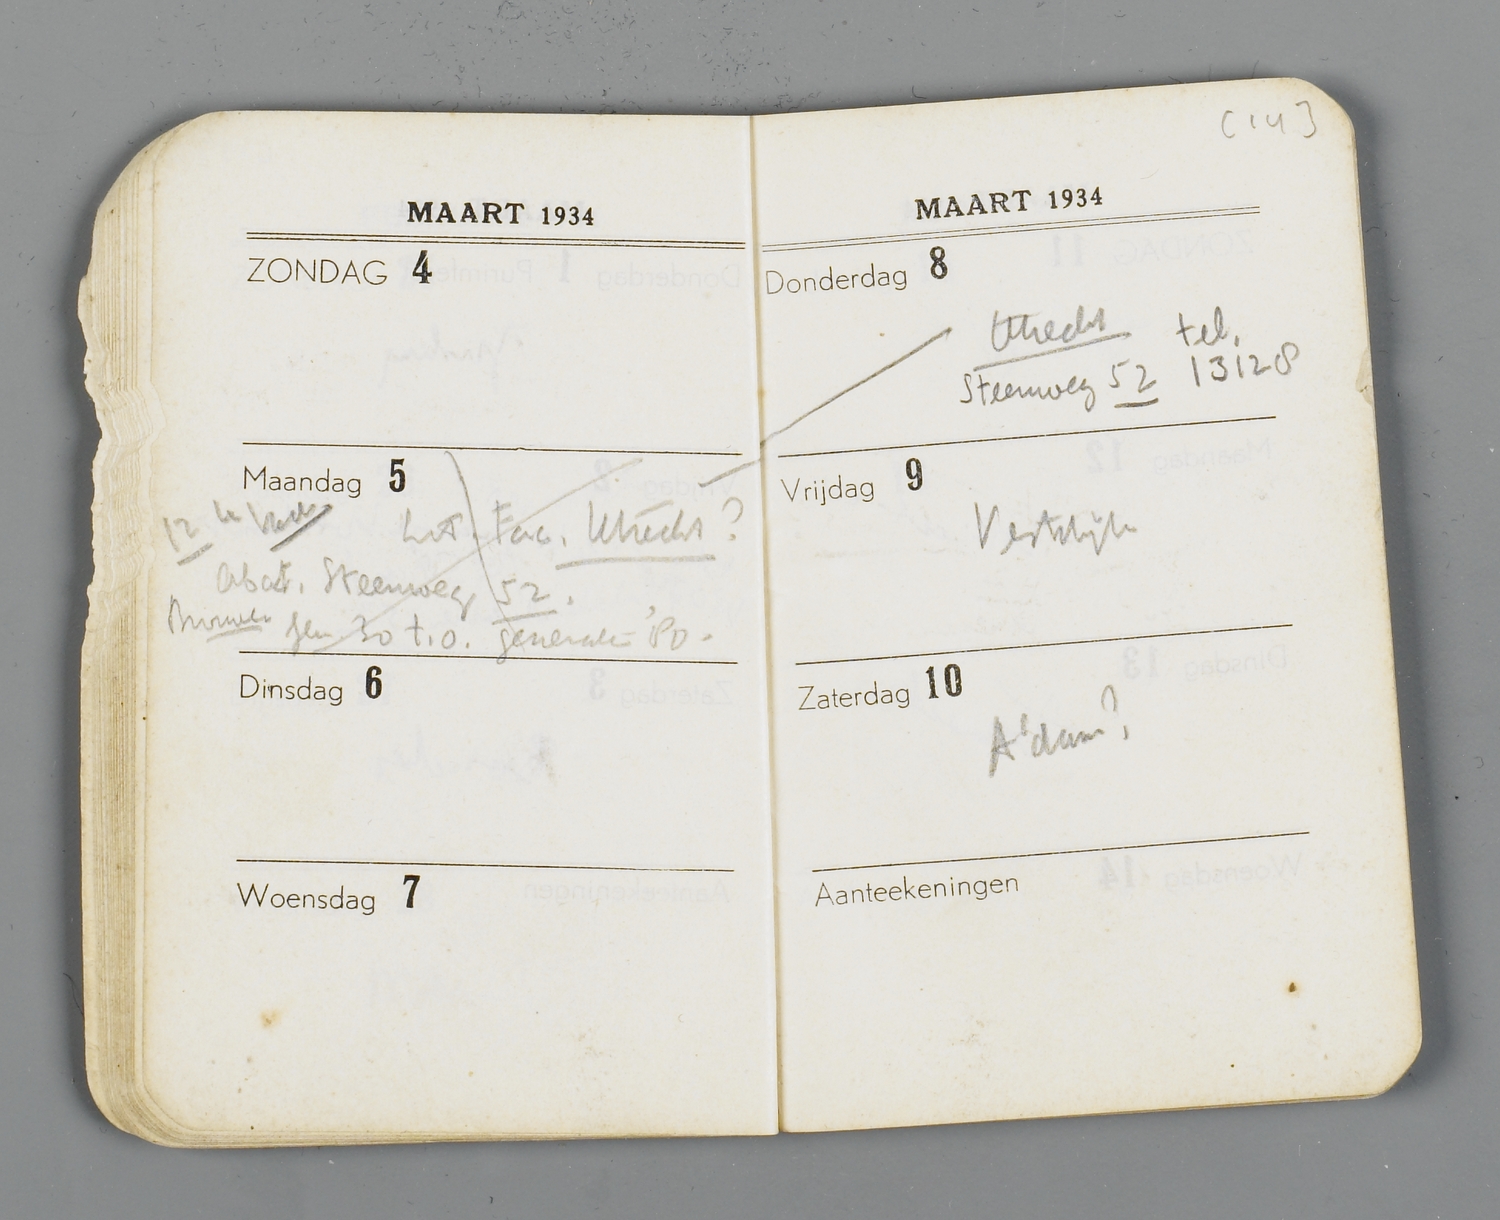 [14]
MAART 1934
ZONDAG 4
Maandag 5
12
Lit. Fac. Utrecht?
Steenweg 52.
30 t.o.
Dinsdag 6
Woensdag 7
MAART 1934
Donderdag 8
Utrecht tel.
Steenweg 52 13128
Vrijdag 9
Zaterdag 10
A'dam?
Aanteekeningen